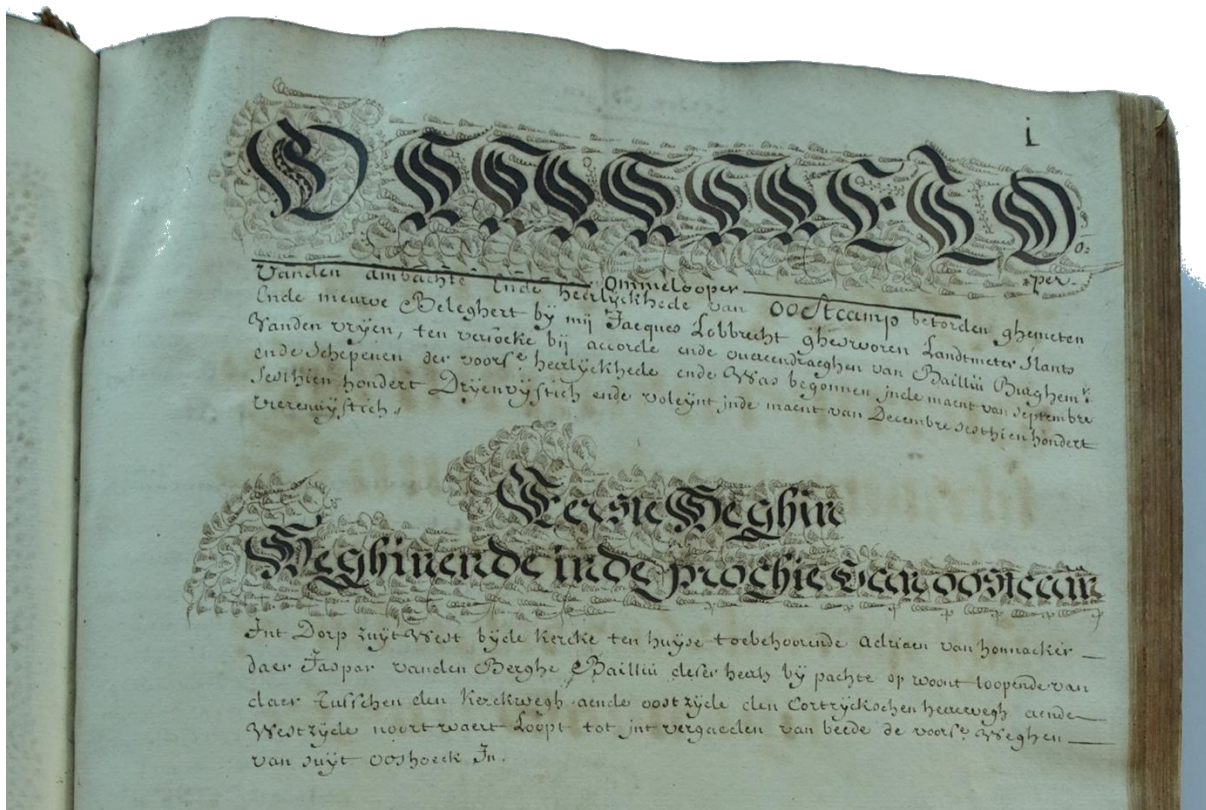 i
OMMELOO:
:per.
Ommelooper
Vanden ambachte Ende heerlyckhede van oostcamp betorden ghemeten
Ende nieuwe Beleghert by mij Jacques Lobbrecht ghesworen Landtmeter slants
Vanden vryen, ten versoecke bij accorde ende overeendraeghen van Bailliu Burghemr.
ende Schepenen der voorse. heerlyckhede ende Was begonnen jnde maent van Septembre
Sesthien hondert Dryenvyftich ende voleynt jnde maent van Decembre sesthien hondert
vierenvyftich,
Eerste Beghin
Beghinende inde prochie van oostcam
Jnt Dorp zuyt West byde kercke ten huyse toebehoorende Adriaen van honnacker
daer Jaspar vanden Berghe Bailliu deser heerh by pachte op woont loopende van
daer tusschen den kerckwegh aende oostzyde den Cortryckschen heerewegh aende
Westzyde noort waert Loopt tot jnt vergaeden van beede de voorse. Weghen
van suyt ooshoeck Jn.